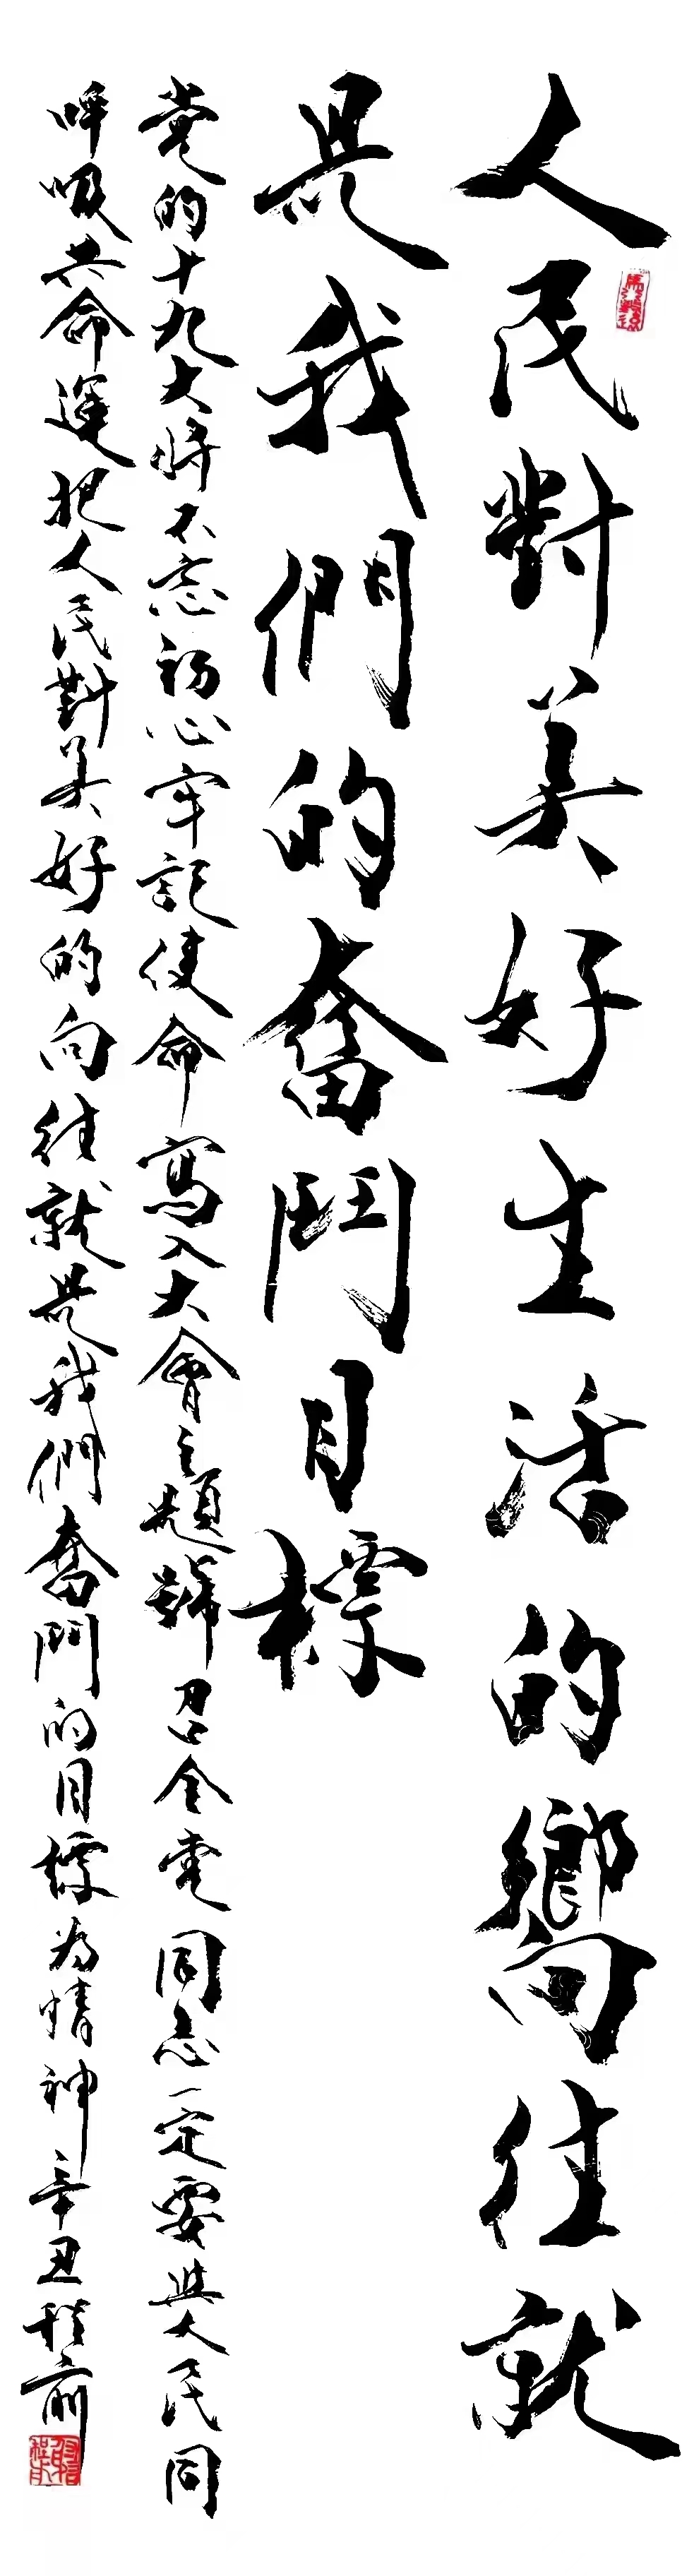 人民對美好生活的嚮往就
是我們的奮鬥目標
黨的十九大將不忘初心牢記使命寫入大會主題號召全党同志一定要與人民同
呼吸共命運把人民對美好的向往就是我們奮鬥的目標為精神辛丑積前